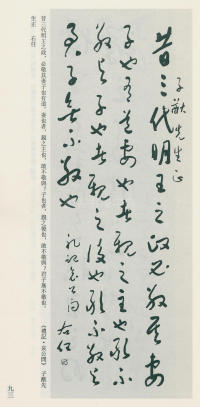 昔三代明王之政必敬其妻
子也有道妻也者親之主也敢不
敬與子也者親之後也敢不敬與
君子無不敬也
礼記哀公问
右任
子猷先生正
昔三代明王之政，必敬其妻子也有道。妻也者，親之主也，敢不敬與？子也者，親之後也，敢不敬與？君子無不敬也。　《禮記·哀公問》　子猷先
生正　右任
九三